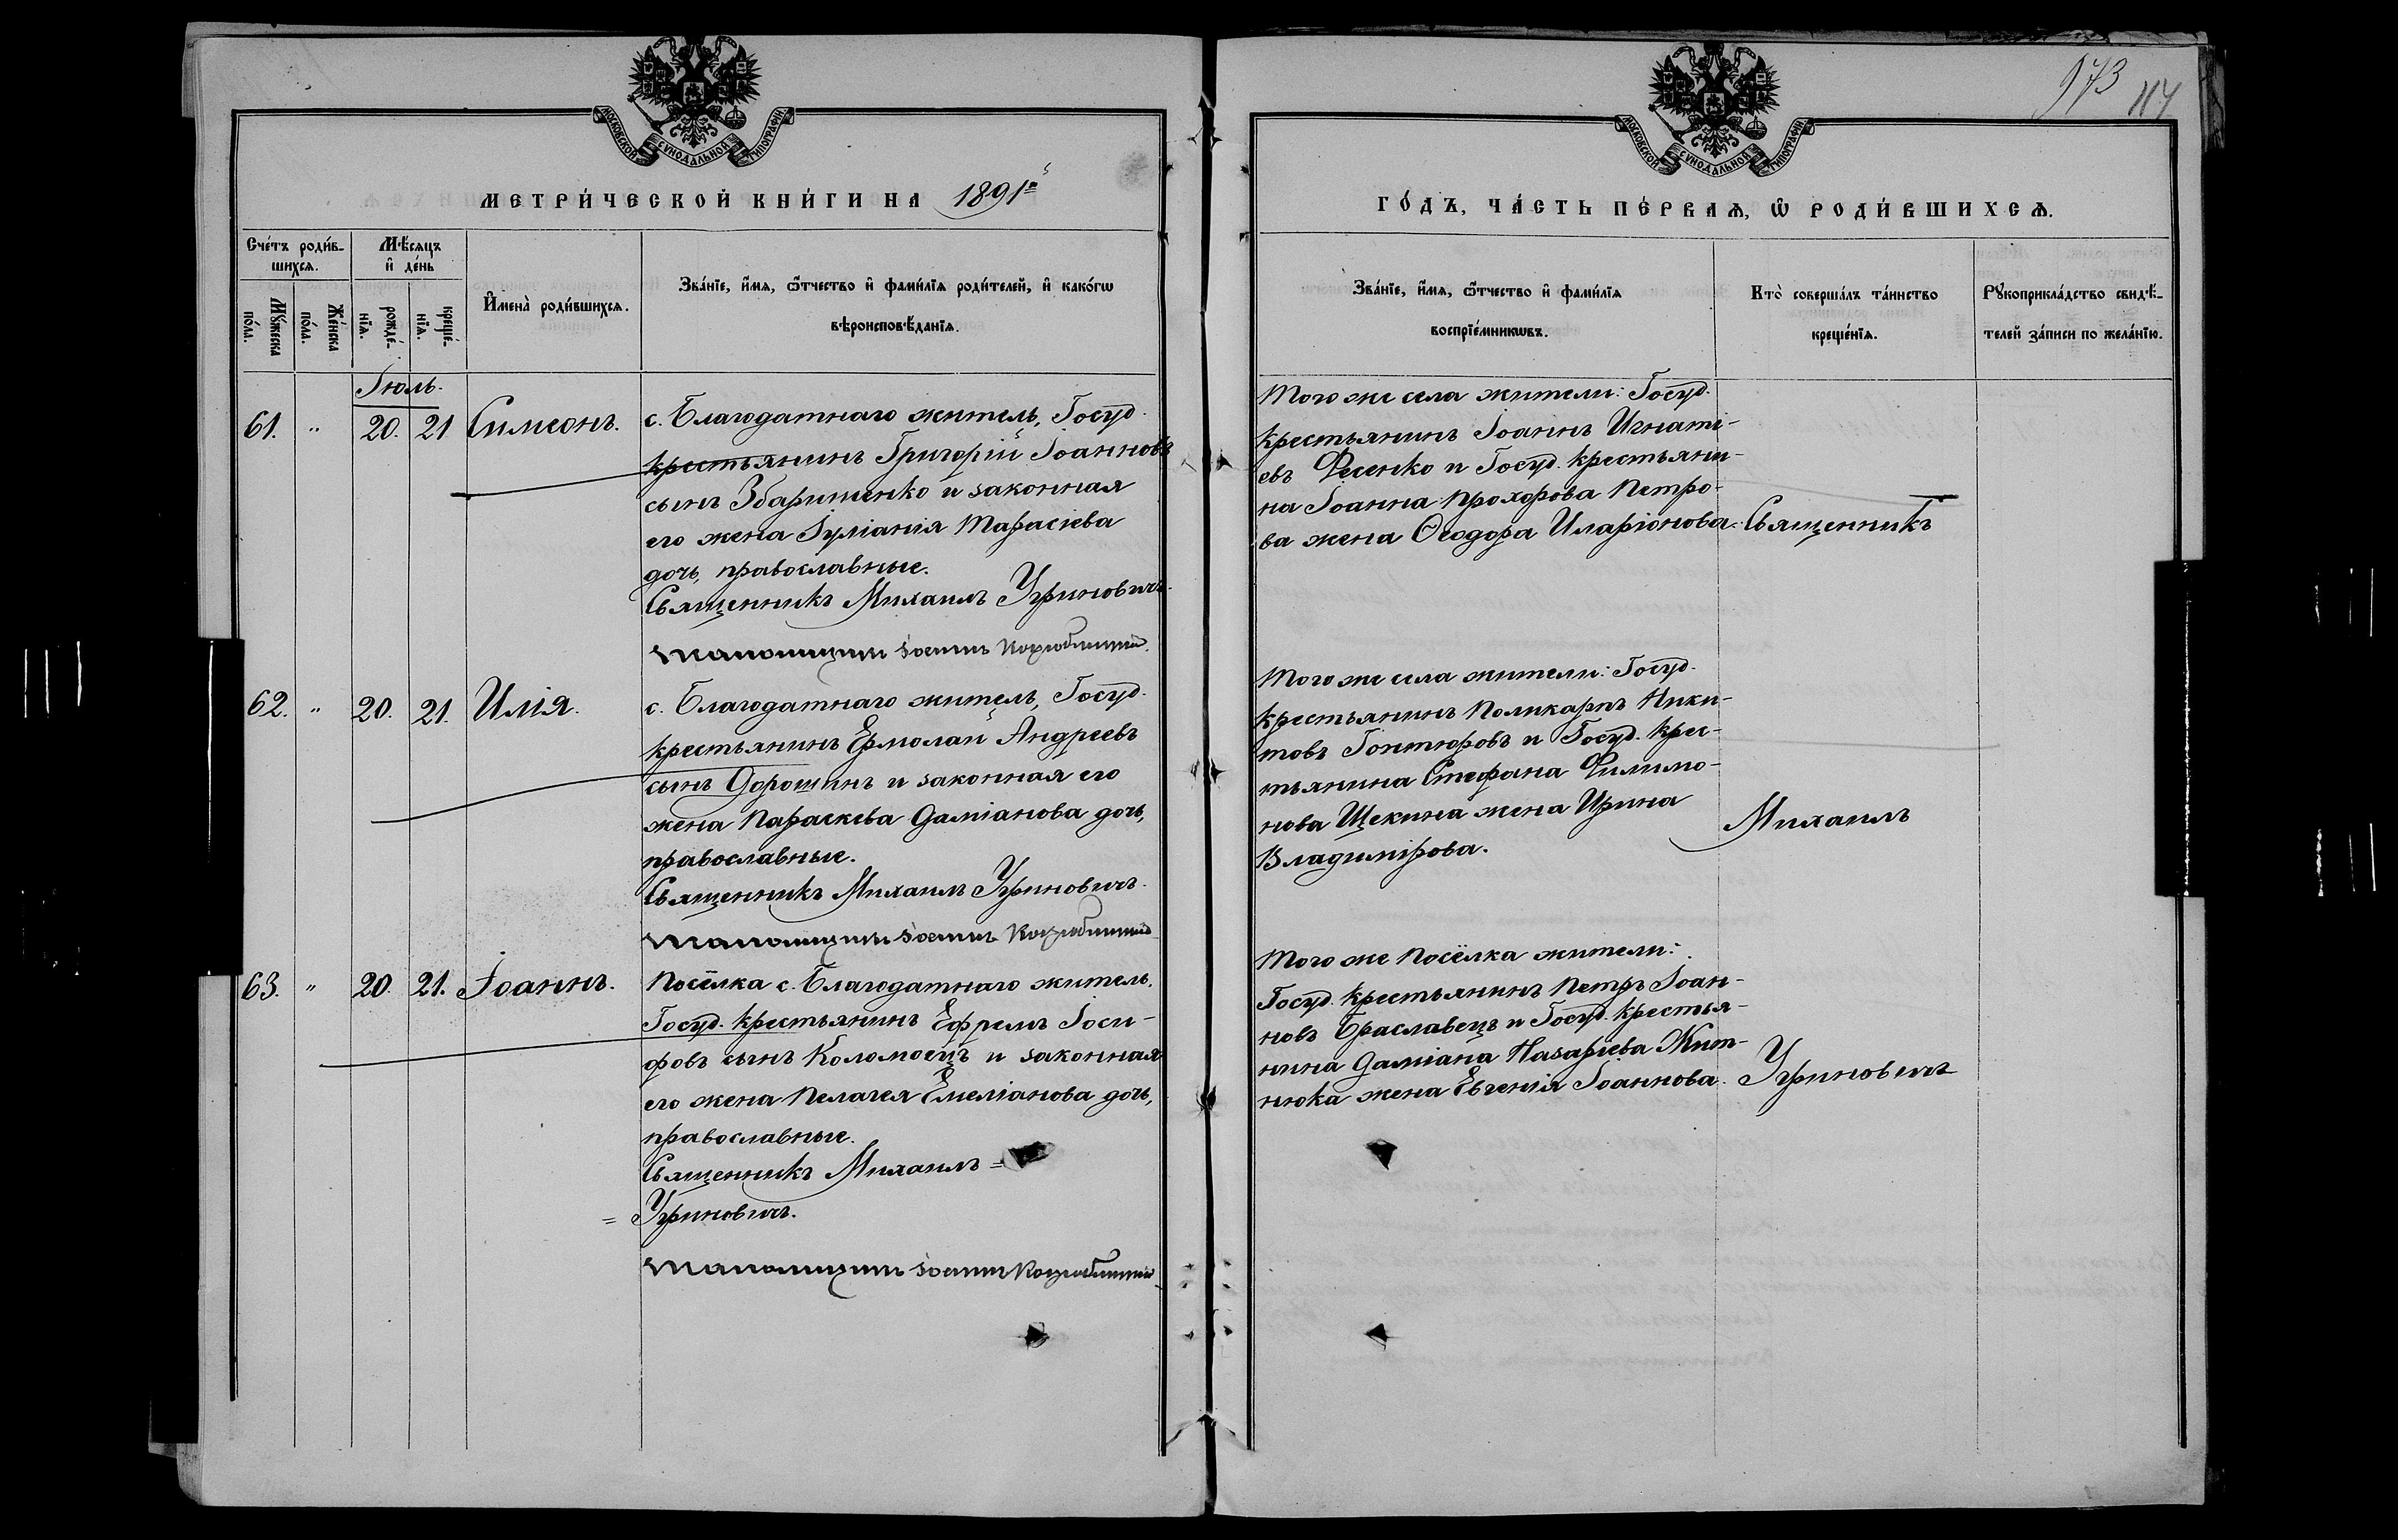 МОСКОВСКОЙ СѴНОДАЛЬНОЙ ТИПОГРАФІИ
МЕТРИ́ЧЕСКОЙ КНИ́ГИ НА 1891й
Сче́тъ роди́в-
шихсѧ.
Мѣ́сѧцъ
и҆ де́нь
Мꙋ́жеска
по́ла.
Же́нска
по́ла.
рожде́-
нїѧ.
креще́-
нїѧ.
И҆мена̀ роди́вшихсѧ.
Зва́нїе, и҆́мѧ, ѻ҆́тчество и҆ фами́лїѧ роди́телей, и҆ како́гѡ
вѣроисповѣ́данїѧ.
Іюль.
61. " 20. 21 Симеонъ.
с. Благодатнаго житель, Госуд.
крестьянинъ Григорій Іоанновъ
сынъ Збаришенко и законная
его жена Іуліанія Тарасіева
дочь, православные.
Священникъ Михаилъ Угриновичъ.
62. " 20. 21. Илія.
с. Благодатнаго житель, Госуд.
крестьянинъ Ермолай Андреевъ
сынъ Дорошинъ и законная его
жена Параскева Даміанова дочь,
православные.
Священникъ Михаилъ Угриновичъ.
63. " 20. 21. Іоаннъ.
Посёлка с. Благодатнаго житель,
Госуд. крестьянинъ Ефремъ Іоси-
фовъ сынъ Коломоецъ и законная
его жена Пелагея Емеліанова дочь,
православные.
Священникъ Михаилъ =
= Угриновичъ.
973 114
МОСКОВСКОЙ СѴНОДАЛЬНОЙ ТИПОГРАФІИ
ГО́ДЪ, ЧА́СТЬ ПЕ́РВАѦ, Ѡ҆ РОДИ́ВШИХСѦ.
Зва́нїе, и҆́мѧ, ѻ҆́тчество и҆ фами́лїѧ
воспрїе́мникѡвъ.
Кто̀ соверша́лъ та́инство
креще́нїѧ.
Рꙋкоприкла́дство свидѣ́-
телей за́писи по жела́нїю.
Того же села жители: Госуд.
крестьянинъ Іоаннъ Игнаті-
евъ Фесенко и Госуд. крестьяни-
на Іоанна Прохорова Петро-
ва жена Ѳеодора Иларіонова.
Священникъ
Того же села жители: Госуд.
крестьянинъ Поликарпъ Ники-
товъ Гонтюровъ и Госуд. крес-
тьянина Стефана Филимо-
нова Щекина жена Ирина
Владимірова.
Михаилъ
Того же Посёлка жители:
Госуд. крестьянинъ Петръ Іоан-
новъ Браславецъ и Госуд. крестья-
нина Даміана Назаріева Жит-
нюка жена Евгенія Іоаннова.
Угриновичъ